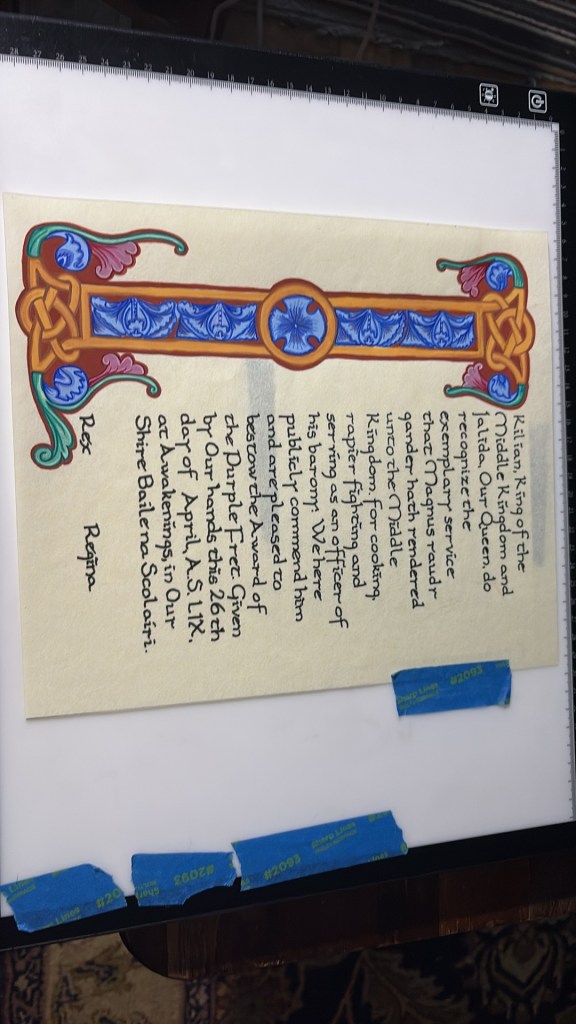 Kilian, King of the
Middle Kingdom and
Jalida, Our Queen, do
recognize the
exemplary service
that Magnus raudr
gander hath rendered
unto the Middle
Kingdom, for cooking,
rapier fighting and
serving as an officer of
his barony. We here
publicly commend him
and are pleased to
bestow the Award of
the Purple Fret. Given
by Our hands this 26th
day of April, A.S. LIX,
at Awakenings, in Our
Shire Baile na Scolairi.
Rex Regina
#2093
Sharp Lines
#2093
Sharp Lines
#2093
Sharp
#20
Lines